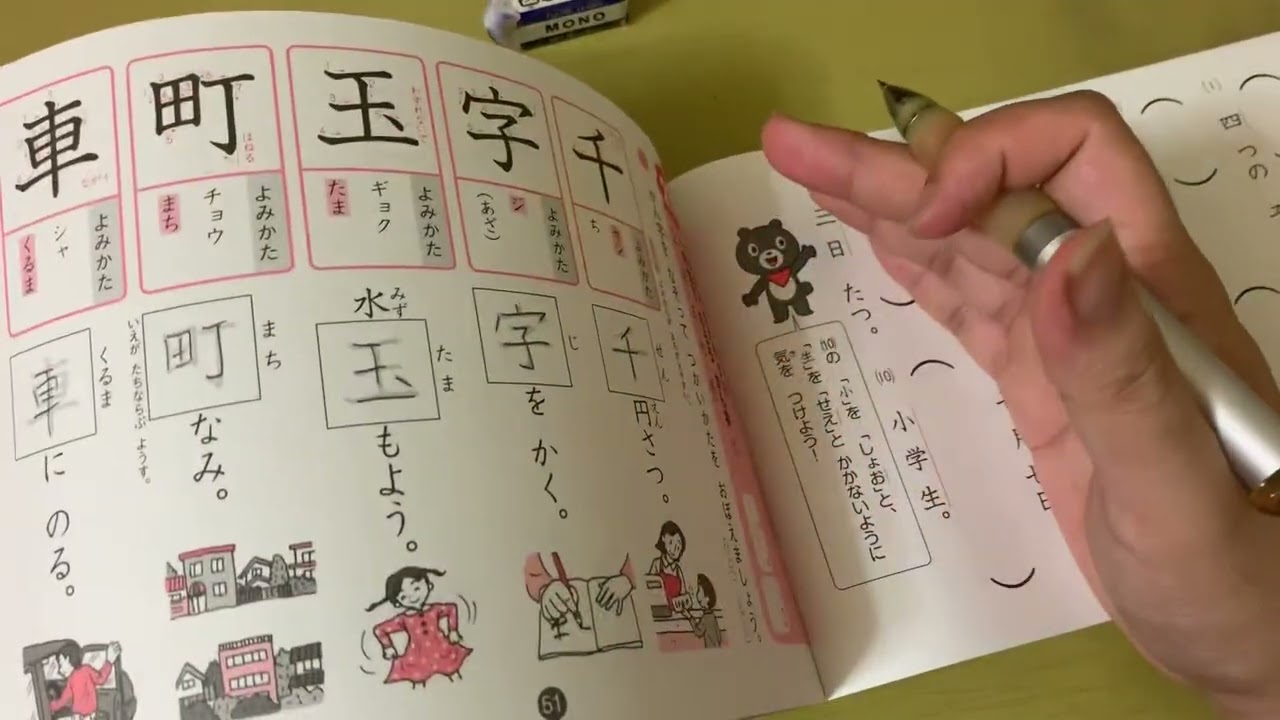 MONO
千
よみかた
セン
ち
千
せん
円さつ。
えん
字
よみかた
ジ
(あざ)
字
じ
をかく。
玉
わすれないで
よみかた
ギョク
たま
水
みず
玉
たま
もよう。
町
はねる
よみかた
チョウ
まち
町
まち
なみ。
いえが たちならぶ ようす。
車
ながく
よみかた
シャ
くるま
車
くるま
に のる。
51
(1)
四つの
日
たつ。
(10)
小学生。
(10)の「小」を「しょお」と、
「生」を「せえ」と かかないように
気を つけよう!